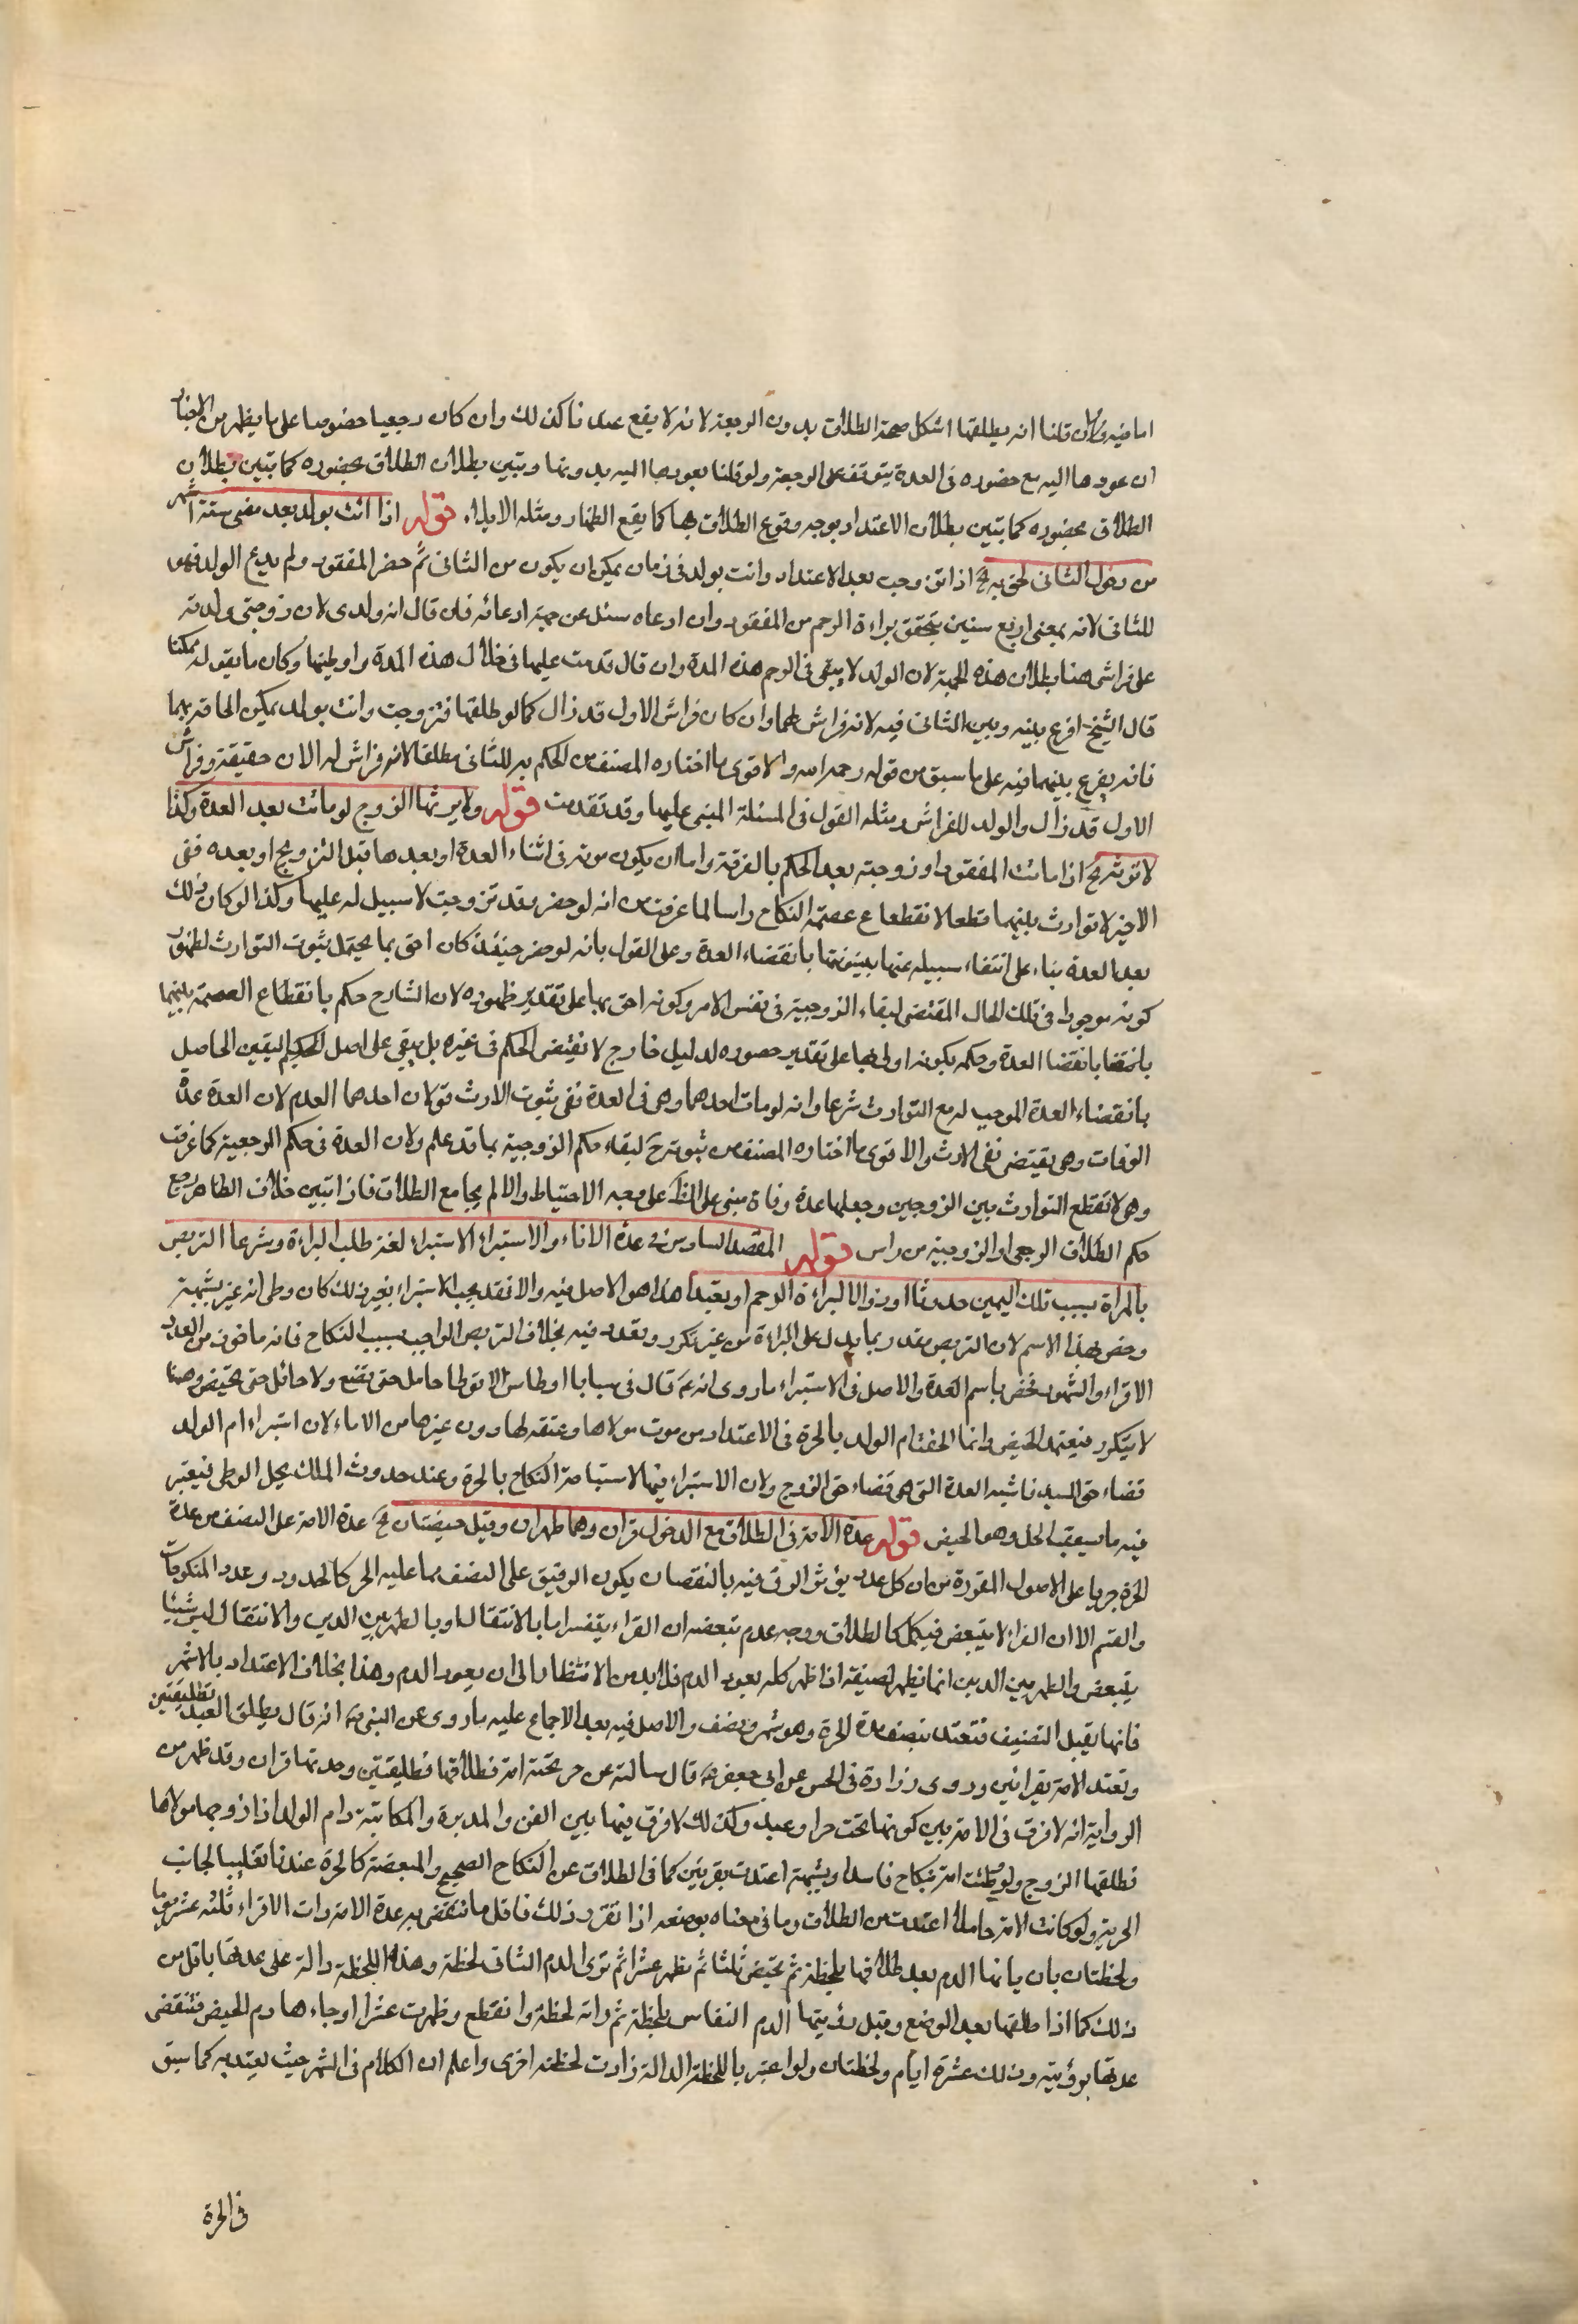 اما فيه فان قلنا انه يطلقها اشكل صحة الطلاق بدون الرجعة لانه لا يقع عندنا كذلك وان كان رجعيا خصوصا على ما يظهر من الاخبار
ان عودها اليه مع حضوره في العدة يتوقف على الرجعة ولو قلنا بعودها اليه بدونها وتبين بطلان الطلاق بحضوره كما تبين بطلان
الطلاق بحضوره كما تبين بطلان الاعتداد بوجه وقوع الطلاق بها كما يقع الظهار ومثله الايلاء قوله اذا اتت بولد بعد مضى ستة اشهر
من دخول الثانى لحق به الخ اذا تزوجت بعد الاعتداد واتت بولد في زمان يمكن ان يكون من الثانى ثم حضر المفقود ولم يدع الولد فهو
للثانى لانه بمضى اربع سنين يتحقق براءة الرحم من المفقود وان ادعاه سئل عن جهة ادعائه فان قال انه ولدى لان زوجتى ولدته
على فراشى هنا بطلان هذه الجهة لان الولد لا يبقى في الرحم هذه المدة وان قال قدمت عليها في خلال هذه المدة واوطيتها وكان ما يقوله ممكنا
قال الشيخ اقرع بينه وبين الثانى فيه لانه فراش لهما وان كان فراش الاول قد زال كما لو طلقها فتزوجت واتت بولد يمكن الحاقه بهما
فانه يقرع بينهما فيه على ما سبق من قوله رحمه الله والاقوى ما اختاره المصنف من الحكم به للثانى مطلقا لانه فراش له الان حقيقة وفراش
الاول قد زال والولد للفراش ومثله القول في المسئلة المبنى عليها وقد تقدمت قوله ولا يرثها الزوج لو ماتت بعد العدة وكذا
لا ترثه الخ اذا مات المفقود او زوجته بعد الحكم بالفرقة واما ان يكون موته في اثناء العدة او بعدها قبل التزويج او بعده ففى
الاخير لا توارث بينهما قطعا لانقطاع عصمة النكاح راسا لما عرفت من انه لو حضر وقد تزوجت لا سبيل له عليها وكذا لو كان ذلك
بعد العدة بناء على انتفاء سبيله عنها ببينونتها بانقضاء العدة وعلى القول بانه لو حضر حينئذ كان احق بها يحتمل ثبوت التوارث لظهور
كونه موجودا في تلك الحال المقتضى لبقاء الزوجية في نفس الامر وكونه احق بها على تقدير ظهوره لان الشارع حكم بانقطاع العصمة بينهما
بانقضا العدة وحكمه بكونه اولى بها على تقدير حضوره لدليل خارج لا يقتضى الحكم في غيره بل يبقى على اصل الحكم اليقين الحاصل
بانقضاء العدة الموجب له مع التوارث شرعا وانه لو مات احدهما وهى في العدة ففى ثبوت الارث قولان احدهما العدم لان العدة عدة
الوفات وهى يقتضى نفى الارث والاقوى ما اختاره المصنف من ثبوته ح لبقاء حكم الزوجية بما قد علم ولان العدة في حكم الرجعية كما عرفت
وهى لا تقطع التوارث بين الزوجين وجعلها عدة وفاة مبنى على وجه الاحتياط والا لم يجامع الطلاق فاذا تبين خلاف الظاهر رجع
حكم الطلاق الرجعى او الزوجية من راس قوله المقصد السادس في عدة الاماء والاستبراء الاستبراء لغة طلب البراءة وشرعا التربص
بالمراة بسبب تلك اليمين حدوثا او زوالا لبراءة الرحم او تعبدا هذا هو الاصل فيه والا فقد يجب الاستبراء بغير ذلك كان وطى امة غير بشبهة
وخص بهذا الاسم لان التربص مقدر بما يدل على البراءة من غير تكرر وتعدد فيه بخلاف التربص الواجب بسبب النكاح فانه ماخوذ من العدد
الاقراء والشهور فخص باسم العدة والاصل في الاستبراء ما روى انه ع قال في سبايا اوطاس لا توطا حامل حتى تضع ولا حائل حتى تحيض وهنا
لا يتكرر فيعتمد الحيض وانما الحقت ام الولد بالحرة في الاعتداد من موت مولاها وعتقه لها دون غيرها من الاماء لان استبراء ام الولد
قضاء حق السيد فاشبه العدة التى هى قضاء حق الزوج ولان الاستبراء فيها لاستباحة النكاح بالحرة وعند حدوث الملك يحل الوطى فيعتبر
فيه ما يستعقب الحل وهو الحيض قوله عدة الامة في الطلاق مع الدخول قران وهما طهران وقيل حيضتان الخ عدة الامة على النصف من عدة
الحرة جريا على الاصول المقررة من ان كل عدد يؤثر الرق فيه بالنقصان يكون الرقيق على النصف مما عليه الحر كالحدود وعدد المنكوحات
والقسم الا ان القرء لا يتبعض فيكمل كالطلاق ووجه عدم تبعضه ان القراء يفسر اما بالانتقال او بالطهر بين الدمين والانتقال ليس شيئا
يتبعض والطهر بين الدمين انما يظهر نصفه اذا ظهر كله بعود الدم فلا بد من الانتظار الى ان يعود الدم وهذا بخلاف الاعتداد بالاشهر
فانها يقبل التنصيف فتعتد بنصف عدة الحرة وهو شهر ونصف والاصل فيه بعد الاجماع عليه ما روى عن النبى ص انه قال يطلق العبد تطليقتين
وتعتد الامة بقرائين وروى زرارة في الحسن عن ابى جعفر ع قال سالته عن حر تحته امة فطلاقها تطليقتين وعدتها قران وقد ظهر من
الرواية انه لا فرق في الامة بين كونها تحت حر او عبد وكذلك لا فرق فيها بين القن والمدبرة والمكاتبة وام الولد اذا زوجها مولاها
فطلقها الزوج ولو وطئت امة بنكاح فاسد او بشبهة اعتدت بقرئين كما في الطلاق عن النكاح الصحيح والمبعضة كالحرة عندنا تغليبا لجانب
الحرية ولو كانت الامة حاملا اعتدت من الطلاق وما في معناه بوضعه اذا تقرر ذلك فاقل ما تنقضى به عدة الامة ذات الاقراء ثلثة عشر يوما
ولحظتان بان ياتها الدم بعد طلاقها بلحظة ثم تحيض ثلثا ثم تطهر عشرا ثم ترى الدم الثانى لحظة وهذه اللحظة دالة على عدتها باقل من
ذلك كما اذا طلقها بعد الوضع وقبل رؤيتها الدم النفاس بلحظة ثم راته لحظة وانقطع وطهرت عشرا وجاءها دم الحيض فتنقضى
عدتها برؤيته وذلك عشرة ايام ولحظتان ولو اعتبر باللحظة الدالة زادت لحظة اخرى واعلم ان الكلام في الشهر حيث يعتد به كما سبق
في الحرة